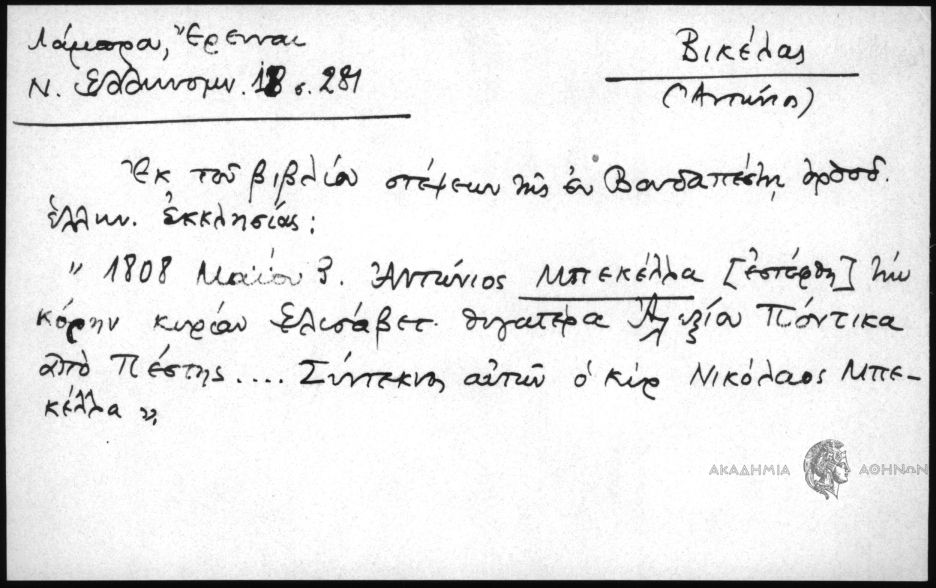 Λάμπρου, Ἔρευναι
Ν. Ἑλληνομν. 18 σ. 281
Βικέλας
(Ἀντώνιος)
Ἐκ τοῦ βιβλίου στέψεων τῆς ἐν Βουδαπέστῃ ὀρθοδ.
ἑλλην. ἐκκλησίας:
" 1808 Μαΐου 3. Ἀντώνιος Μπεκέλλα [ἐστέφθη] τὴν
κόρην κυρίαν Ἐλισάβετ θυγατέρα Ἀλεξίου Πόντικα
ἀπὸ Πέστης .... Σύντεκνος αὐτῶν ὁ κὺρ Νικόλαος Μπε-
κέλλα ".
ΑΚΑΔΗΜΙΑ ΑΘΗΝΩΝ